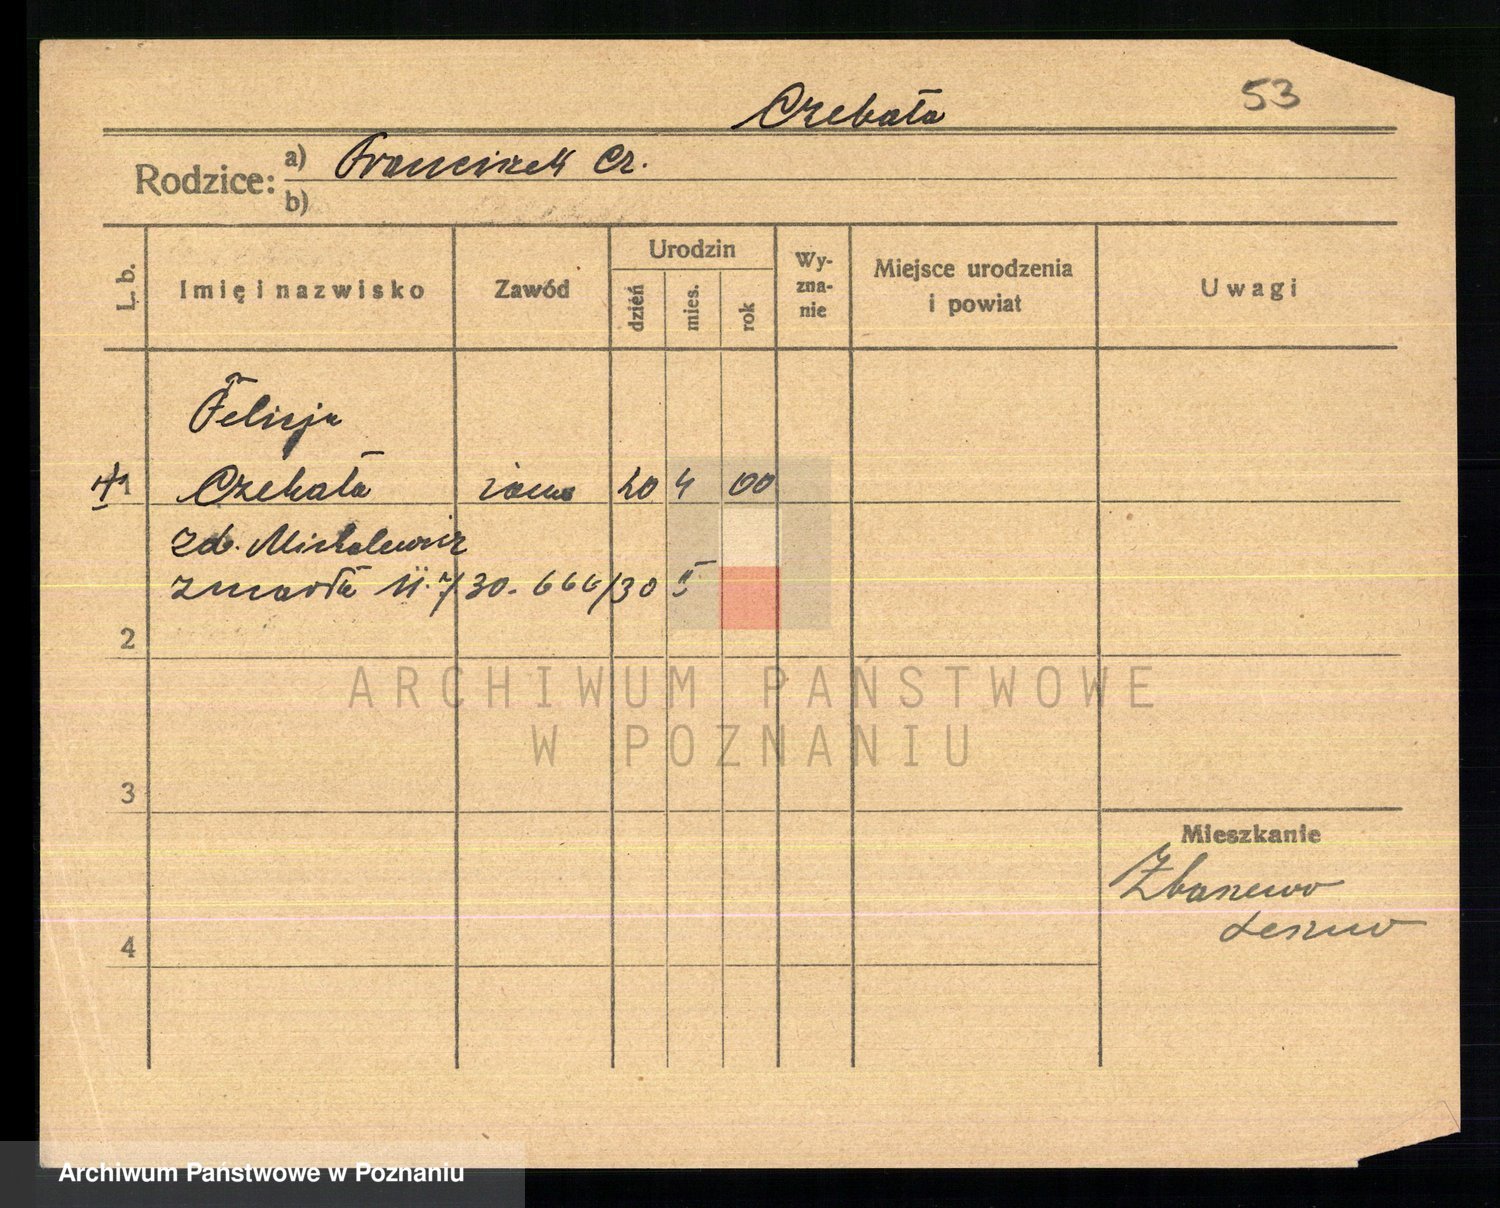 53
Czebała
Rodzice: a) Franciszek Cz.
b)
L. b.
Imię i nazwisko
Zawód
Urodzin
dzień
mies.
rok
Wy-
zna-
nie
Miejsce urodzenia
i powiat
Uwagi
Felicja
1 Czebała żona 20 4 00
zd. Michalewicz
zmarła 11.7/30. 666/30 II
2
3
4
Mieszkanie
Zbarzewo
Leszno
ARCHIWUM PAŃSTWOWE
W POZNANIU
Archiwum Państwowe w Poznaniu